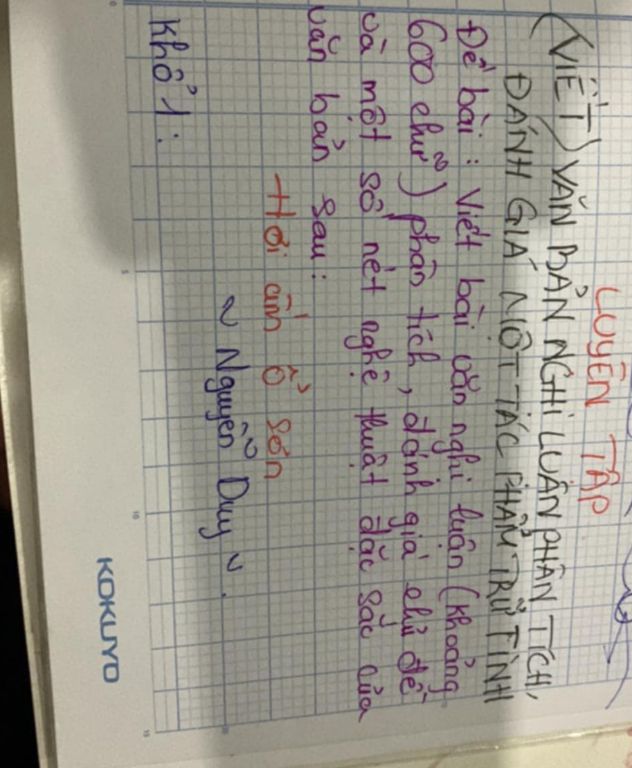 LUYỆN TẬP
(VIẾT) VĂN BẢN NGHỊ LUẬN PHÂN TÍCH,
ĐÁNH GIÁ MỘT TÁC PHẨM TRỮ TÌNH
Đề bài: Viết bài văn nghị luận (khoảng
600 chữ) phân tích, đánh giá chủ đề
và một số nét nghệ thuật đặc sắc của
văn bản sau:
Hơi ấm ổ rơm
~ Nguyễn Duy ~.
Khổ 1:
KOKUYO